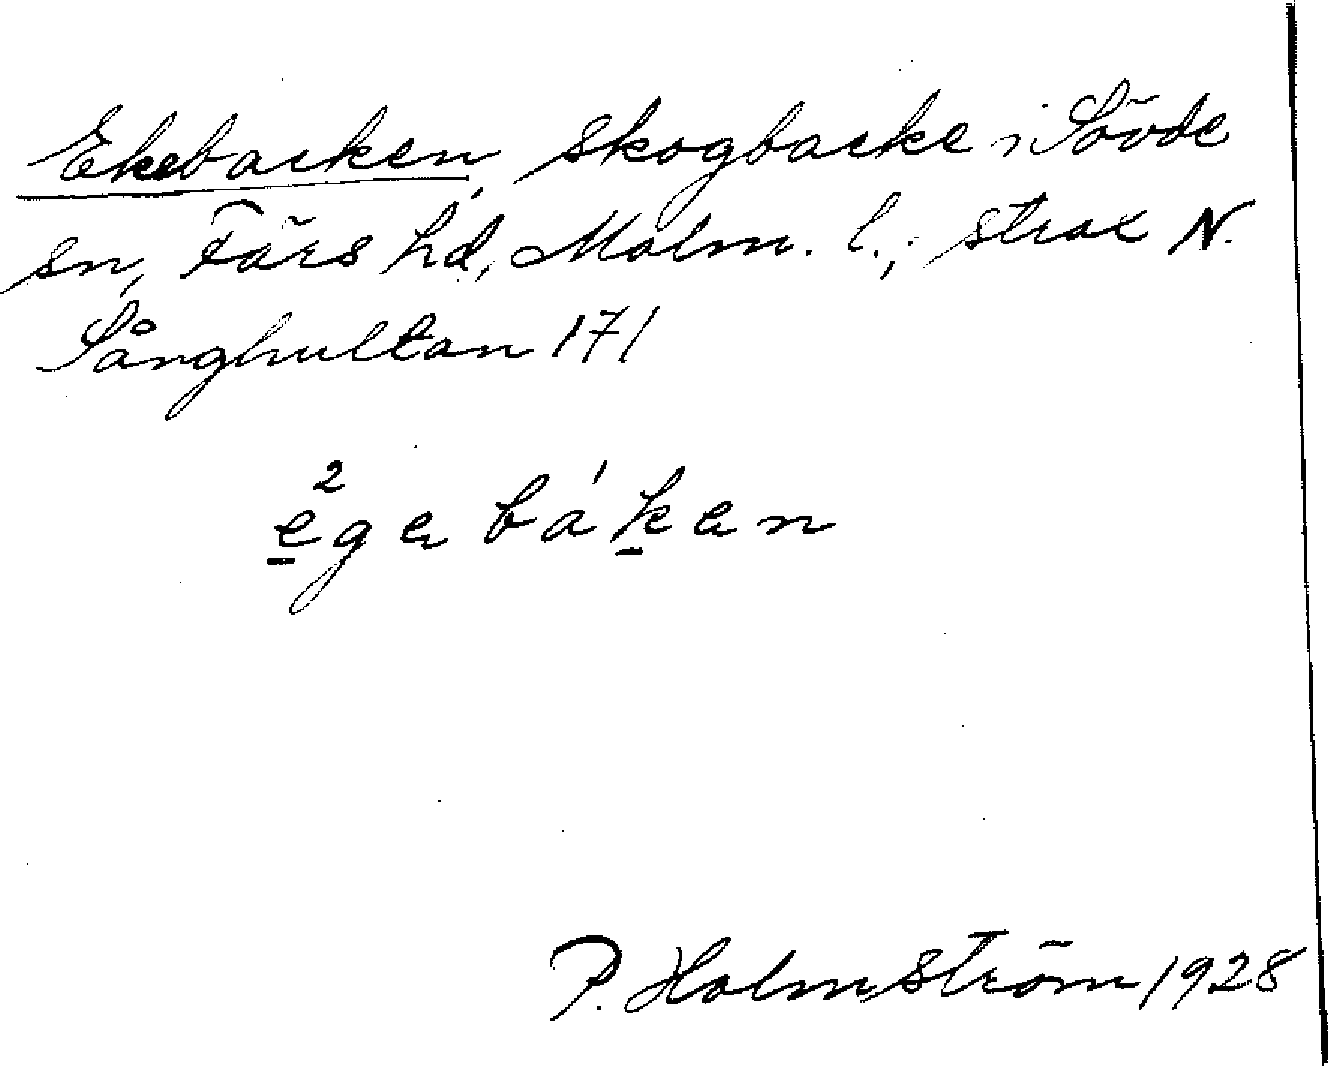 Ekebacken, skogbacke i Sövde
sn, Färs hd, Malm. l.; strax N.
Sånghultan 171
e²gebá'ken
P. Holmström 1928